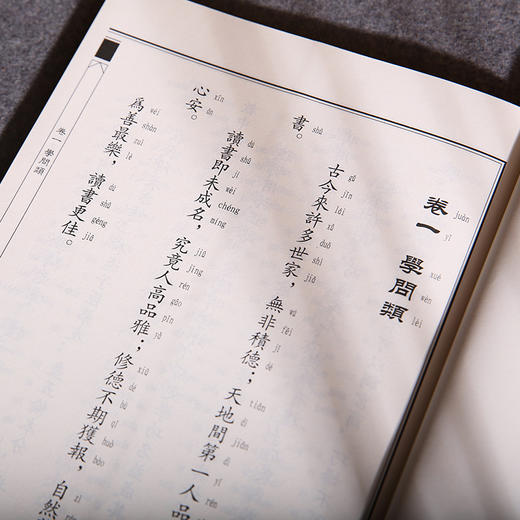 卷一 學問類
juàn yī xué wèn lèi
古今來許多世家，無非積德；天地間第一人品
gǔ jīn lái xǔ duō shì jiā wú fēi jī dé tiān dì jiān dì yī rén
書。
shū
讀書即未成名，究竟人高品雅；修德不期獲報，自然
dú shū jí wèi chéng míng jiū jìng rén gāo pǐn yǎ xiū dé bù qī huò bào zì rán
心安。
xīn ān
為善最樂，讀書更佳。
wéi shàn zuì lè dú shū gèng jiā
卷一 學問類